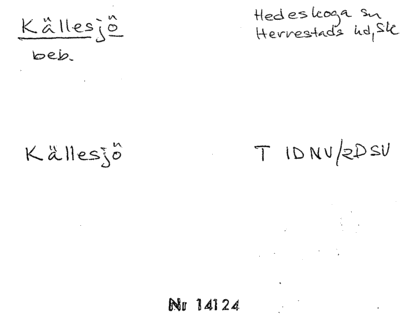 Källesjö
beb.
Hedeskoga sn
Herrestads hd, Sk
Källesjö
T 1DNV/2DSV
Nr 14124